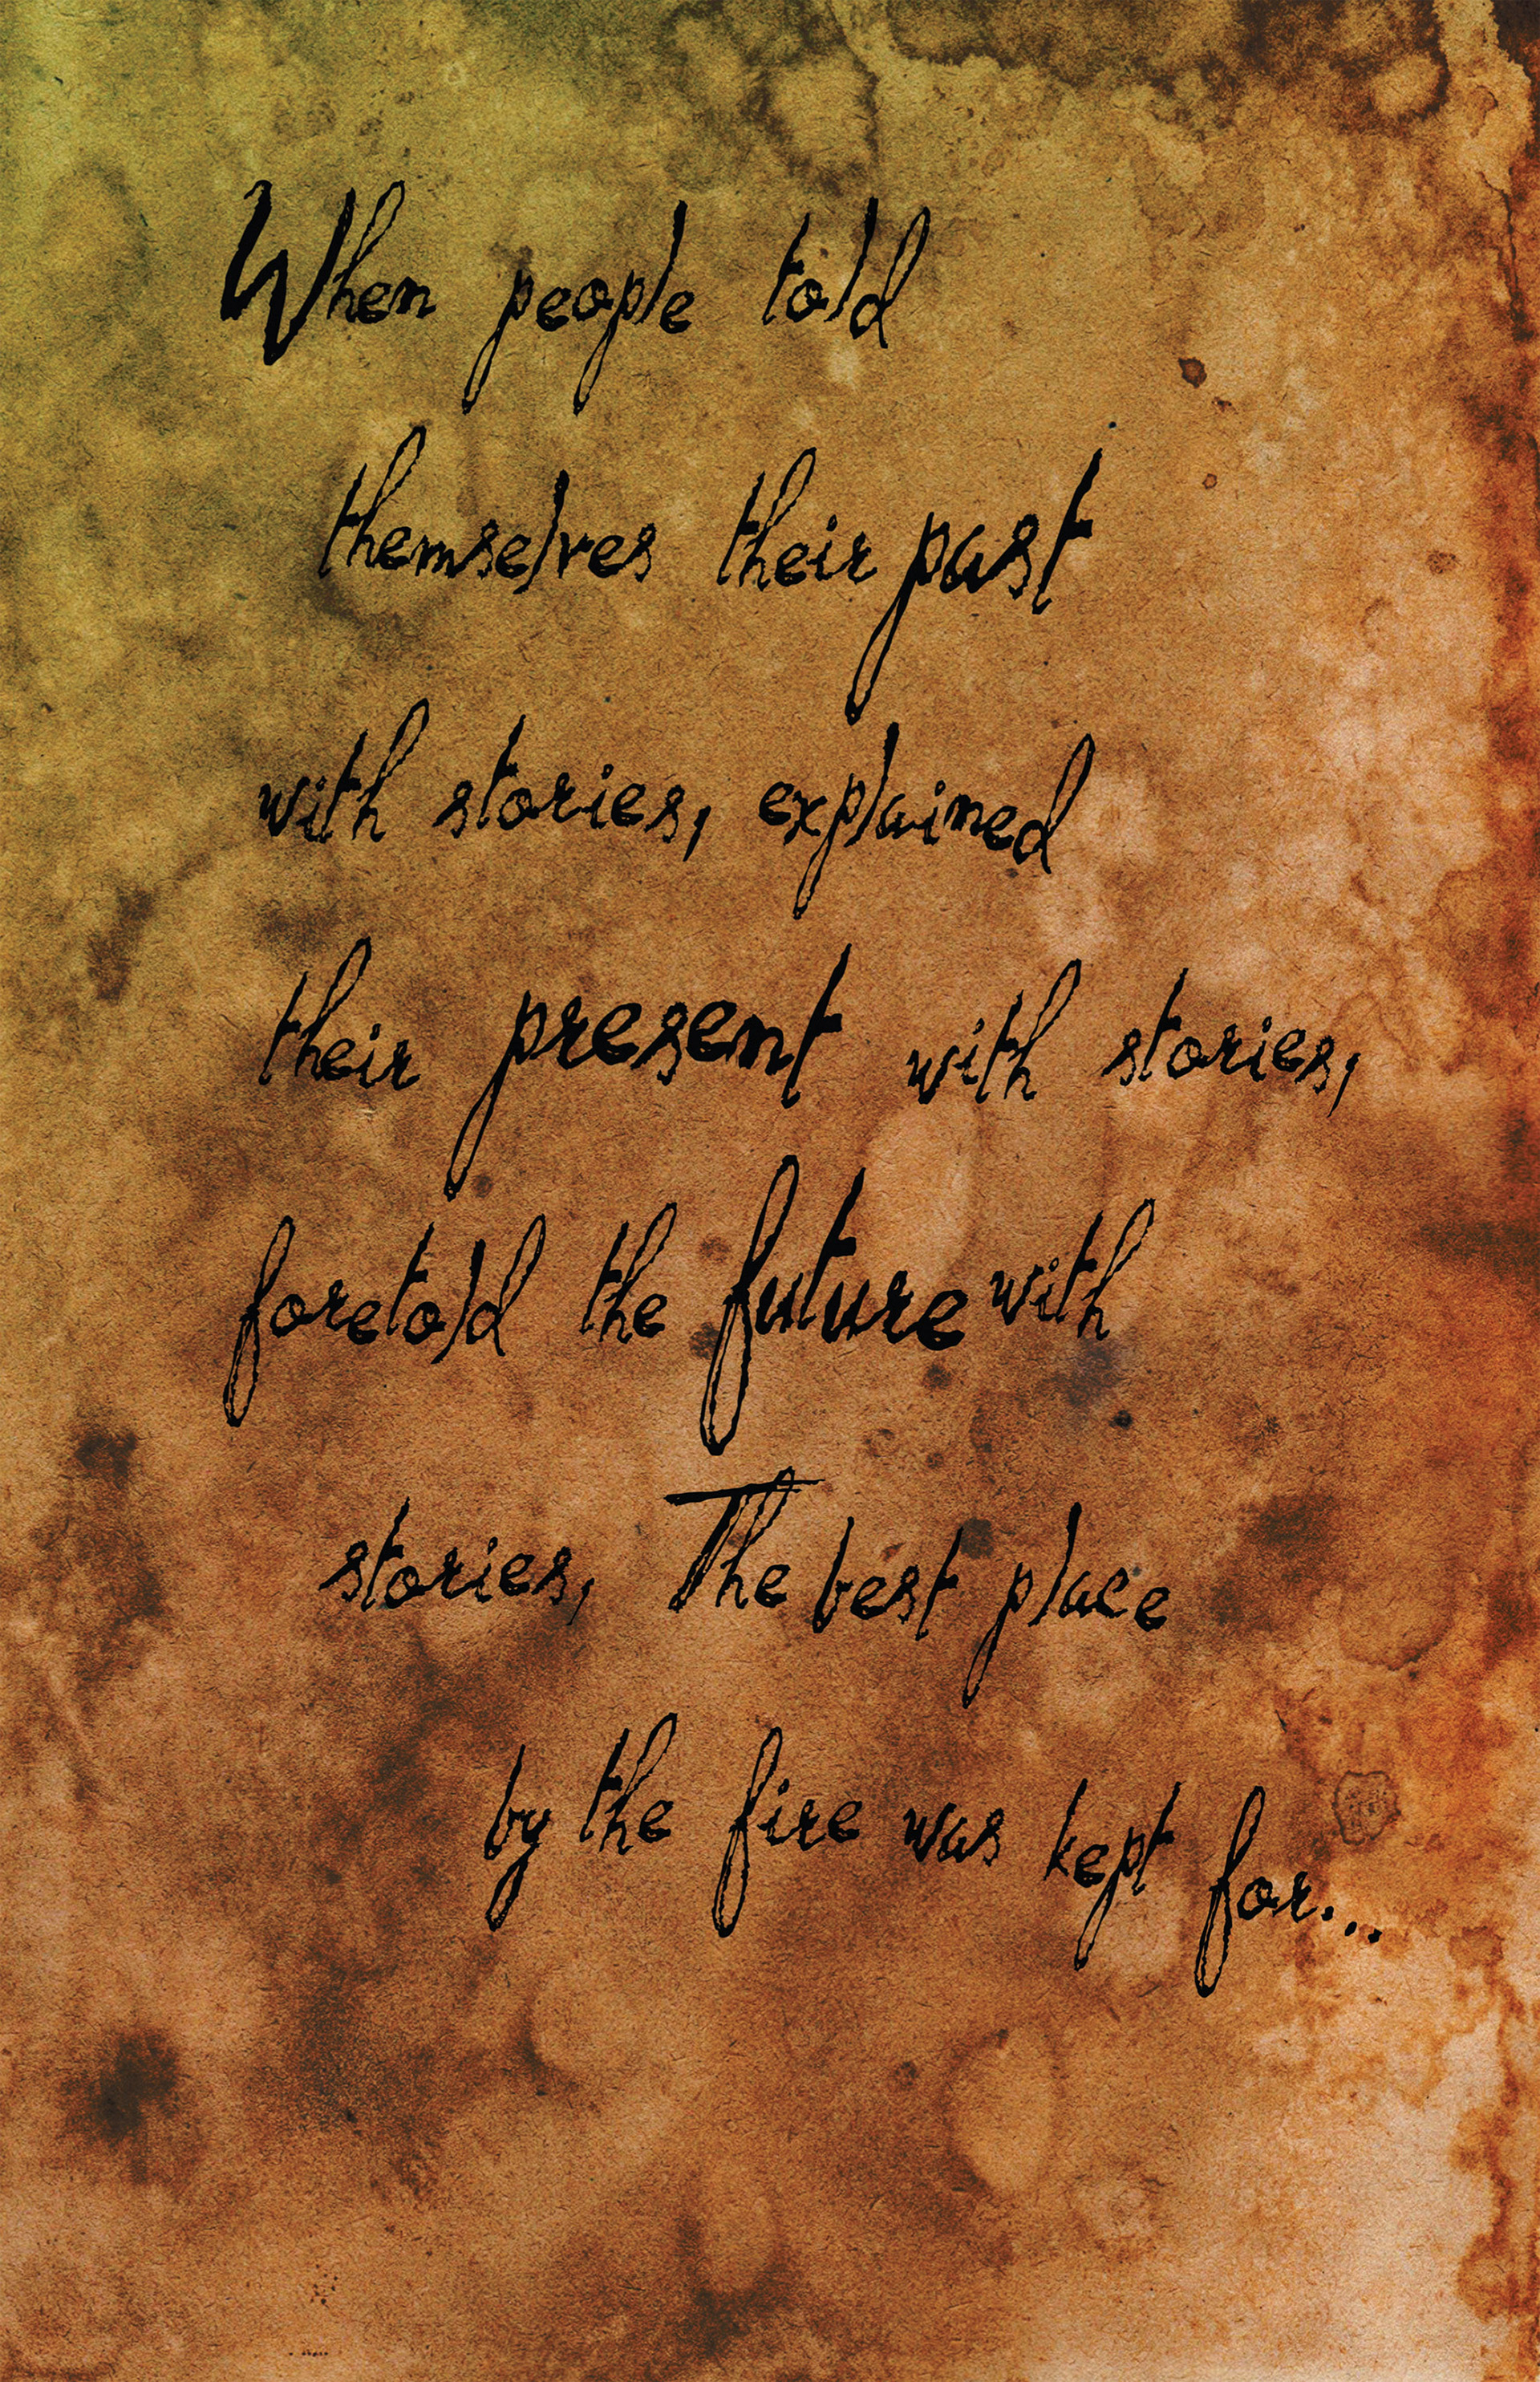 When people told
themselves their past
with stories, explained
their present with stories,
foretold the future with
stories, The best place
by the fire was kept for...